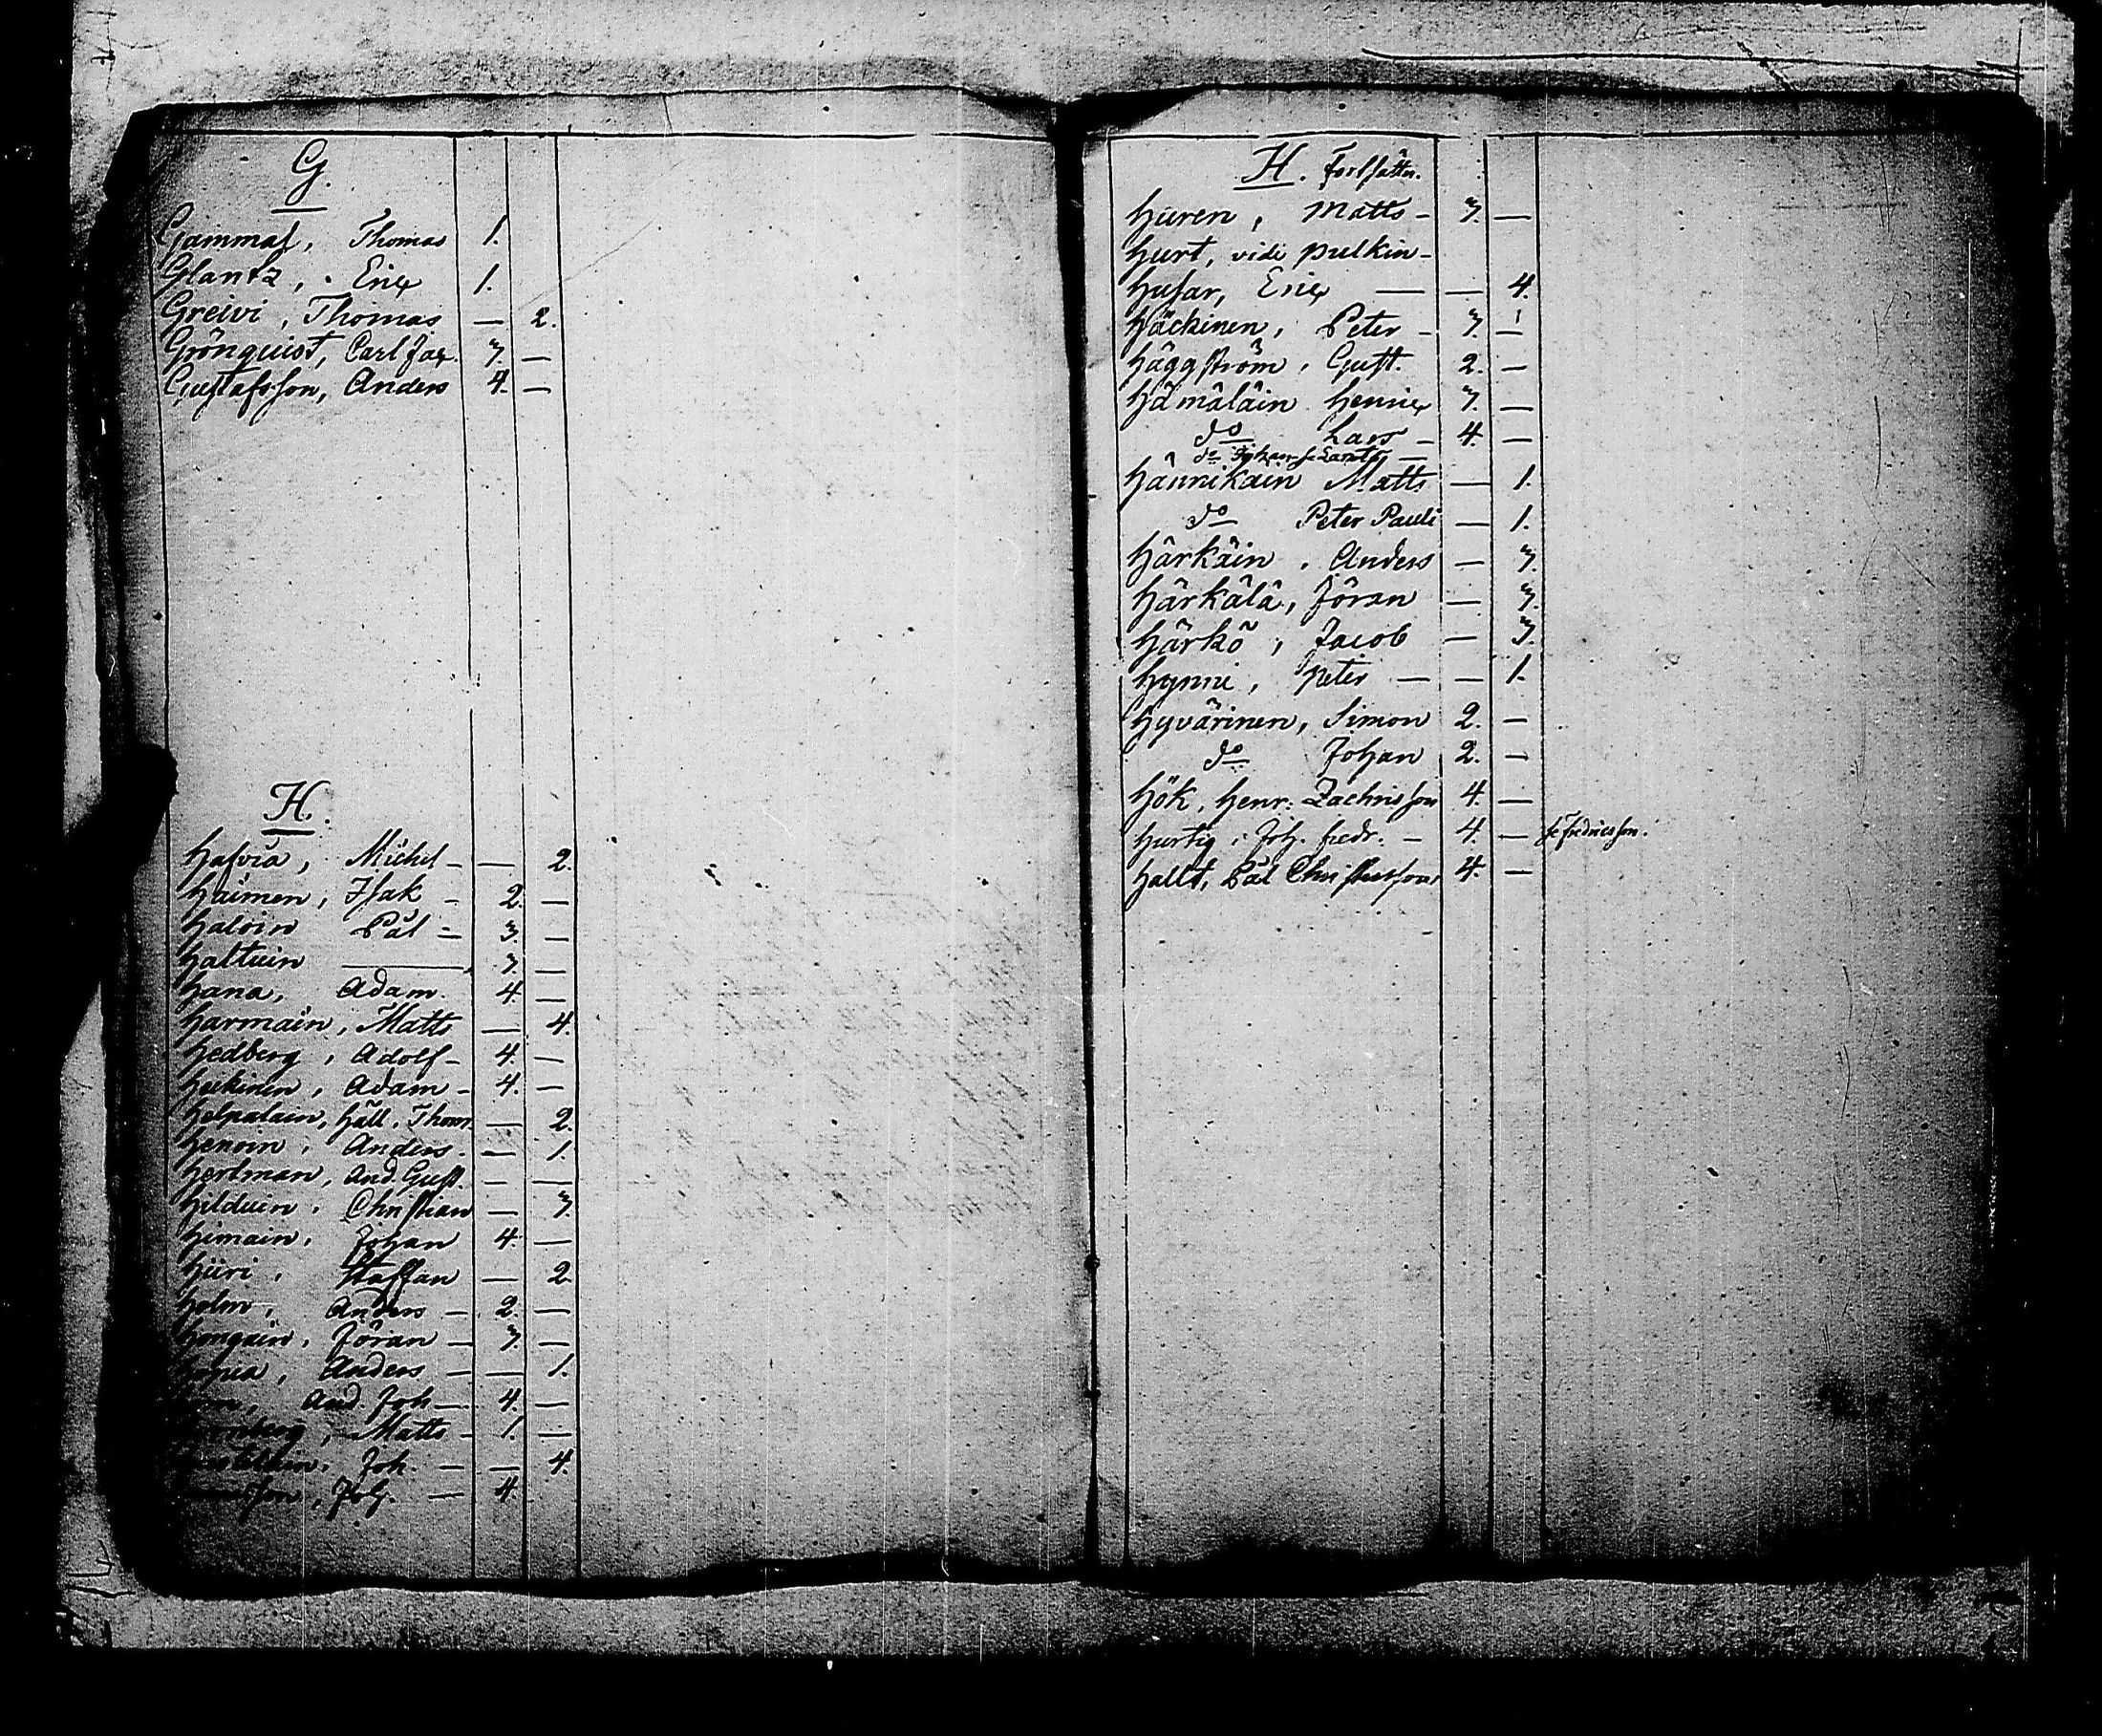 G.
Gammal, Thomas 1.
Glantz, Eric 1.
Greivi, Thomas — 2.
Grönquist, Carl Jac. 3. —
Gustafsson, Anders 4. —
H.
Halvia, Michel — — 2.
Haimen, Isak — 2. —
Haloin Pål — 3. —
Haltuin —— 3. —
Hana, Adam. 4. —
Harmain, Matts — 4.
Hedberg, Adolf — 4. —
Heikinen, Adam — 4. —
Helpalain, Häll, Thom. — 2.
Henoin, Anders — — 1.
Hertman, And. Gust. — —
Hilduin, Christian — 3.
Himain, Johan 4. —
Hiiri, Staffan — 2.
Holm, Anders — 2. —
Hongain, Jöran — 3. —
Anders — — 1.
And. Joh — 4. —
Matts — 1. —
Joh. — — 4.
Joh. — 4.
H. Fortsättn.
Huren, Matts — 3. —
Hurt, vide Pulkin —
Husar, Eric — — 4.
Häckinen, Peter — 3. —
Häggström, Gust. 2. —
Hämäläin Henric 3. —
do Lars — 4. —
do Johan
Hännikäin Matts — 1.
do Peter Pauli — 1.
Härkäin, Anders — 3.
Härkälä, Jöran — 3.
Härkö, Jacob — 3.
Hynni, Peter — — 1.
Hyvärinen, Simon 2. —
do Johan 2. —
Hök, Henr. Zachrisson 4. —
Hurtig, Joh. Fredr. — 4. — se Fredricsson.
Hallt, Pål Christersson 4. —